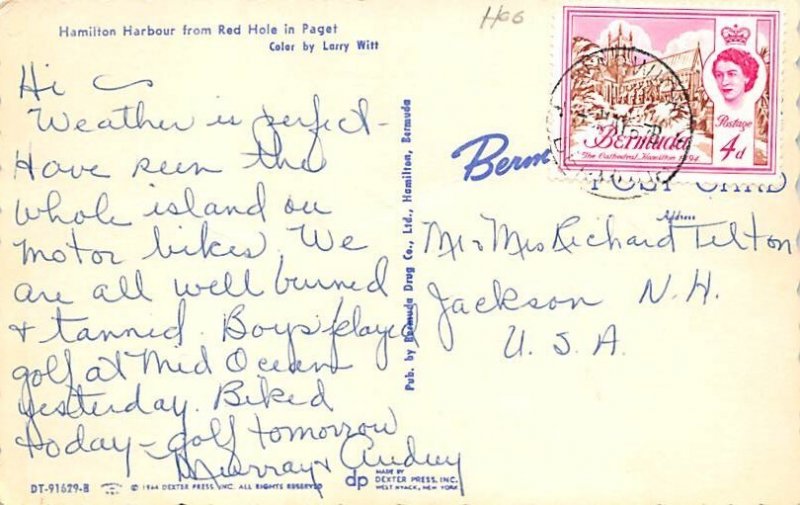 Hamilton Harbour from Red Hole in Paget
Color by Larry Witt
Hoo
Hi
Weather is perfect-
Have seen the
whole island on
motor bikes. We
are all well burned
& tanned. Boys played
golf at Mid Ocean
yesterday. Biked
today - golf tomorrow
Murray & Audrey
DT-91629-B © 1964 DEXTER PRESS, INC. ALL RIGHTS RESERVED
dp MADE BY
DEXTER PRESS, INC.
WEST NYACK, NEW YORK
Pub. by Bermuda Drug Co., Ltd., Hamilton, Bermuda
Berm
POST CARD
Address
Bermuda
The Cathedral, Hamilton 1894
Postage
4d
Mr & Mrs Richard Telton
Jackson N.H.
U.S.A.